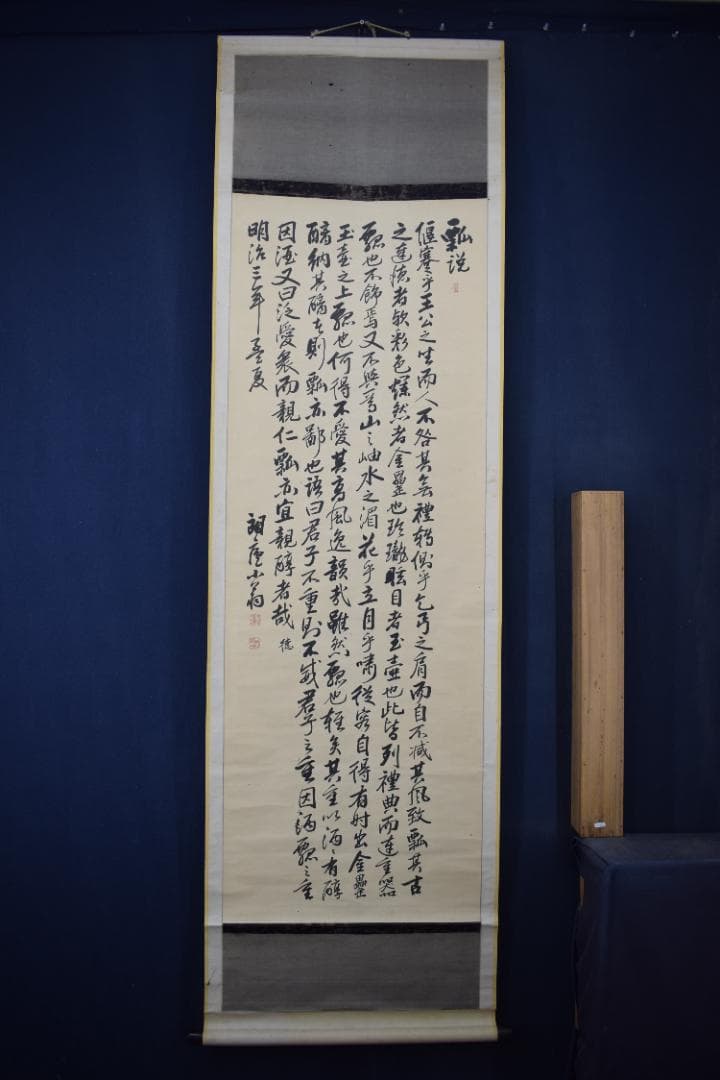 瓢説
偃蹇乎王公之坐而人不咎其無禮轉側乎乞丐之肩而自不減其風致瓢其古
之達徳者歟彩色燦然者金罍也玲瓏眩目者玉壺也此皆列禮典而連重器
瓢也不飾焉又不與焉山之岫水之湄花乎立月乎嘯從容自得有時出金罍
玉壺之上瓢也何得不愛其高風逸韻哉雖然瓢也輕矣其重以酒々有醇
醨納其醨者則瓢亦鄙也語曰君子不重則不威君子之重因瓢之重
因酒又曰泛愛衆而親仁瓢亦宜親醇者哉 徳
明治三年孟夏
小翁